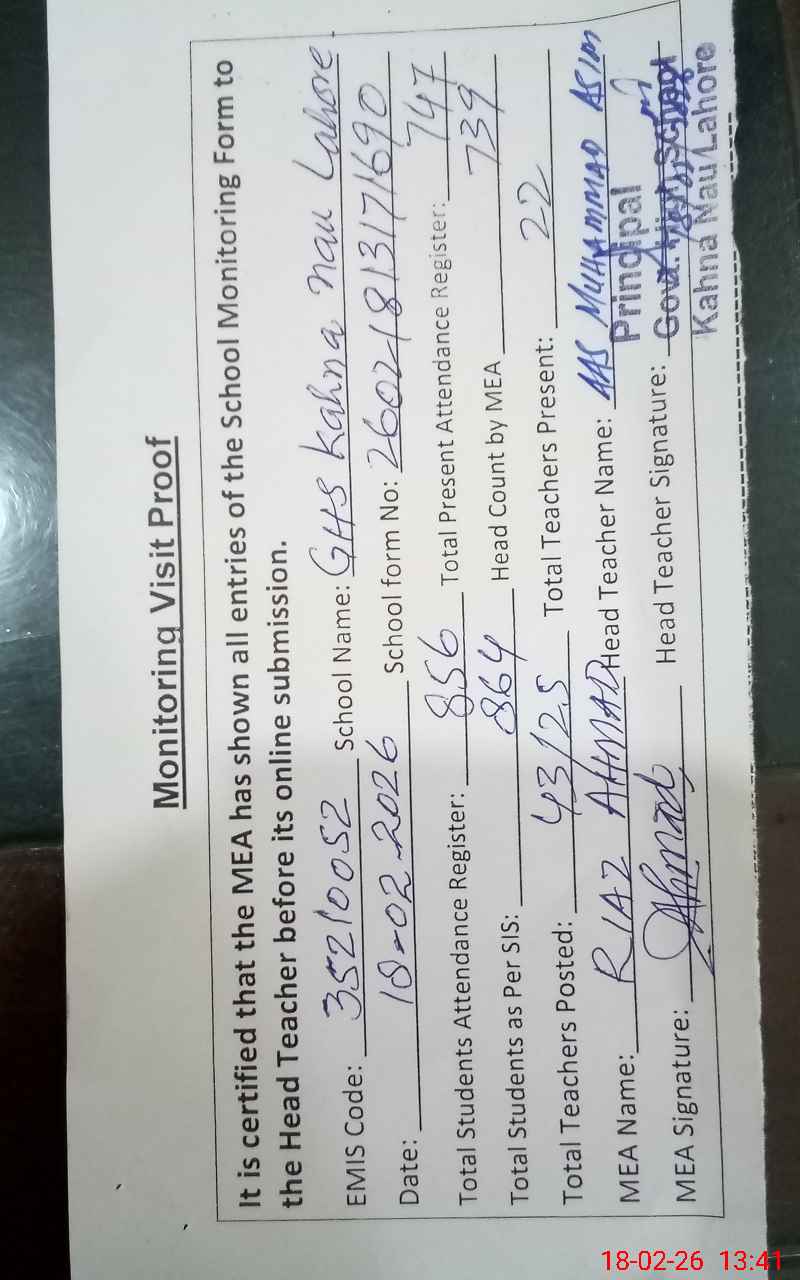 Monitoring Visit Proof
It is certified that the MEA has shown all entries of the School Monitoring Form to
the Head Teacher before its online submission.
EMIS Code: 35210052 School Name: GHS Kahna Nau Lahore
Date: 18-02-2026 School form No: 26021813171690
Total Students Attendance Register: 856 Total Present Attendance Register: 747
Total Students as Per SIS: 864 Head Count by MEA 739
Total Teachers Posted: 43/25 Total Teachers Present: 22
MEA Name: RIAZ AHMAD Head Teacher Name: AAS MUHAMMAD ASIM
MEA Signature: Ahmad Head Teacher Signature:
Principal
Govt. High School
Kahna Nau Lahore
18-02-26 13:41